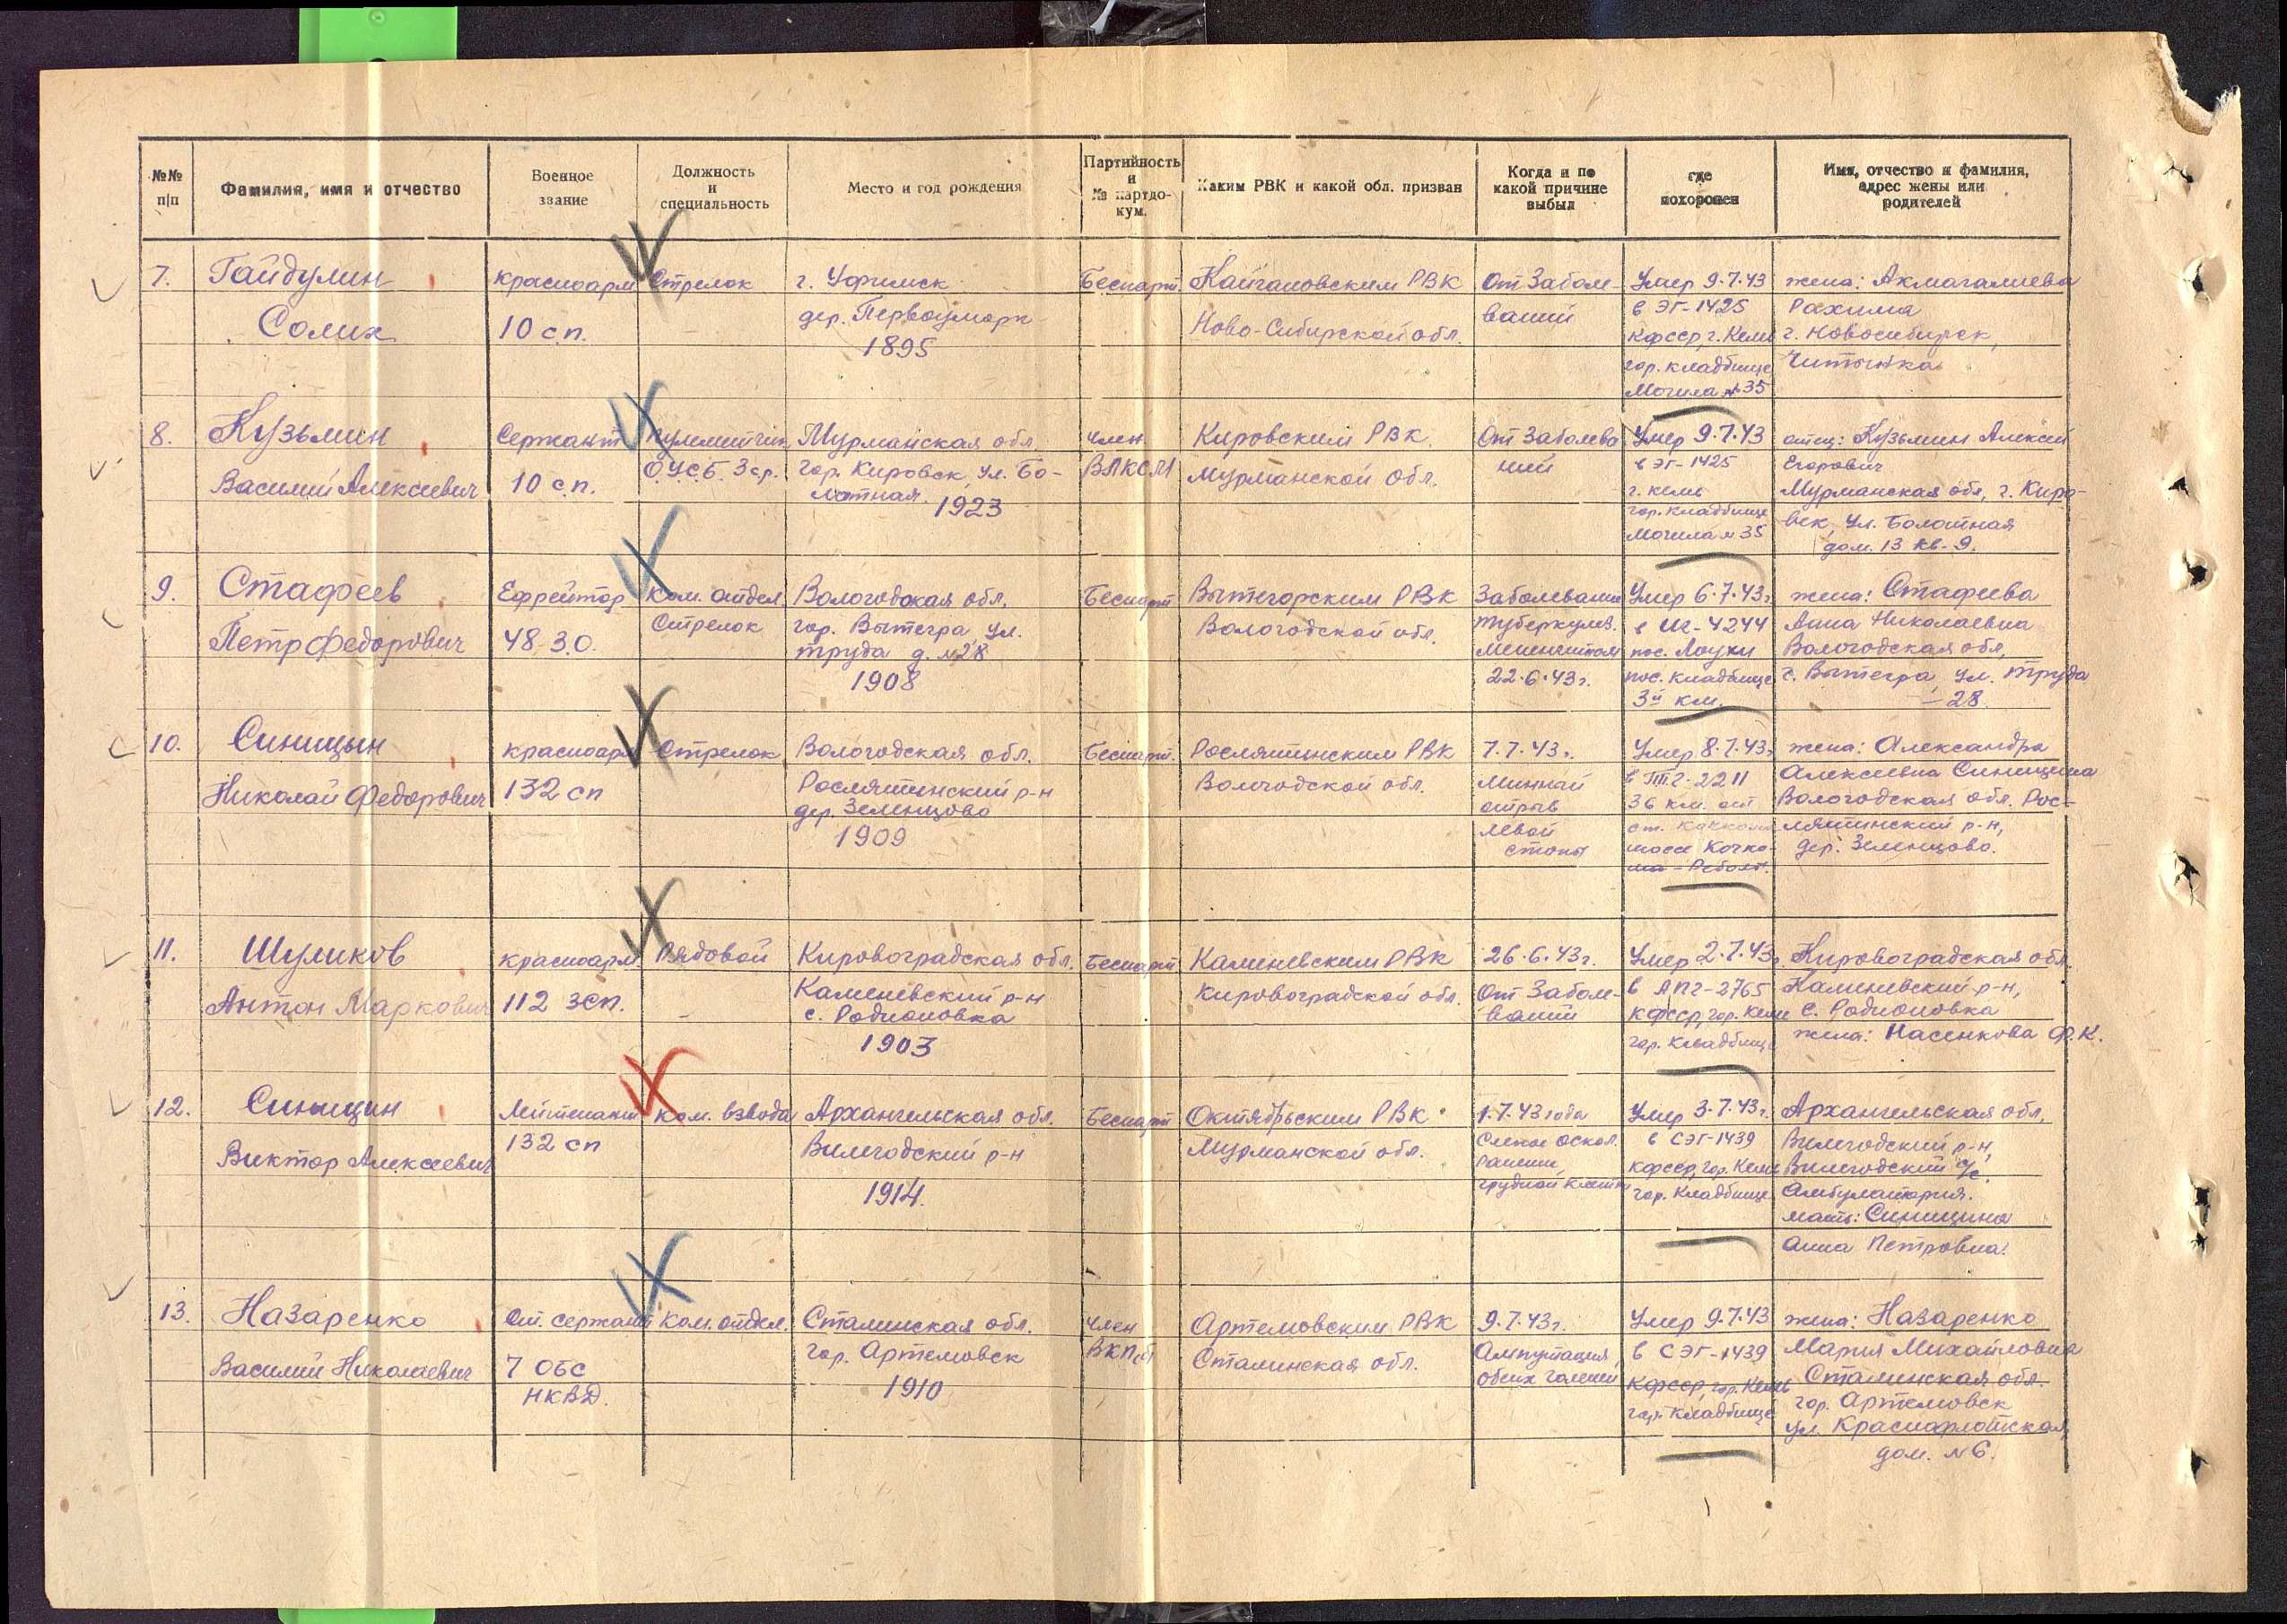 №№ п/п
Фамилия, имя и отчество
Военное звание
Должность и специальность
Место и год рождения
Партийность и № партдокум.
Каким РВК и какой обл. призван
Когда и по какой причине выбыл
где похоронен
Имя, отчество и фамилия, адрес жены или родителей
7.
Гайдулин
Солих
красноарм
10 с.п.
Стрелок
г. Уфимск
дер.
1895
Беспарт.
РВК
Ново-Сибирской обл.
От Заболе-
ваний
Умер 9.7.43
в ЭГ-1425
КФССР, г. Кемь
гор. кладбище
Могила № 35
жена: Акмагалиева
Рахима
г. Новосибирск,
8.
Кузьмин
Василий Алексеевич
Сержант
10 с.п.
пулеметчик
О.У.С.Б. 3 ср.
Мурманская обл
гор. Кировск, ул. Бо-
лотная.
1923
член
ВЛКСМ
Кировским РВК.
Мурманской Обл.
От Заболева
ний
Умер 9.7.43
в ЭГ-1425
г. кемь
гор. кладбище
Могила № 35
отец: Кузьмин Алексей
Егорович
Мурманская обл, г. Киро-
вск, ул. Болотная
дом. 13 кв. 9.
9.
Стафеев
Петр Федорович
Ефрейтор
48 З.О.
Ком. отдел.
Стрелок
Вологодская обл.
гор. Вытегра, ул.
труда д. №28
1908
Беспарт
Вытегорским РВК
Вологодской обл.
Заболевание
туберкулез.
22.6.43г.
Умер 6.7.43г
в ИГ-4244
пос. Лоухи
пос. кладбище
3й км.
жена: Стафеева
Анна Николаевна
Вологодская обл,
г. Вытегра, ул. Труда
- 28.
10.
Синицын
Николай Федорович
красноарм
132 сп
Стрелок
Вологодская обл.
Рослятинский р-н
дер. Зеленцово
1909
Беспарт.
Рослятинским РВК
Вологодской обл.
7.7.43г.
Минный
отрыв
левой
стопы
Умер 8.7.43г
в ТПГ-2211
36 км. от
ст. Кочкома
шоссе Кочко-
ма - Реболы.
жена: Александра
Алексеевна Синицына
Вологодская обл. Рос-
лятинский р-н,
дер. Зеленцово.
11.
Шуликов
Антон Маркович
красноарм.
112 зсп.
Рядовой
-
Кировоградская обл.
Каменевский р-н
с. Родионовка
1903
Беспарт
Каменевским РВК
Кировоградской обл.
26.6.43г.
От Заболе-
ваний
Умер 2.7.43г.
в АПГ-2765
КФССР, гор. Кемь
гор. Кладбище
Кировоградская обл.
Каменевский р-н,
с. Родионовка
жена: Насенкова Ф.К.
12.
Синицин
Виктор Алексеевич
Лейтенант
132 сп
Ком. взвода
Архангельская обл.
Вилегодский р-н
1914.
Беспарт
Октябрьским РВК
Мурманской обл.
1.7.43 года
Слепое оскол.
ранение
грудной клетки
Умер 3.7.43г.
в СЭГ-1439
КФССР, гор. Кемь
гор. Кладбище
Архангельская обл,
Вилегодский р-н,
Вилегодский с/с.
Амбулатория.
мать: Синицина
Анна Петровна.
13.
Назаренко
Василий Николаевич
Ст. сержант
7 ОБС
НКВД.
Ком. отдел.
Сталинская обл.
гор. Артемовск
1910
член
ВКП(б)
Артемовским РВК
Сталинская обл.
9.7.43г.
Ампутация
обеих голеней
Умер 9.7.43
в СЭГ-1439
КФССР, гор. Кемь
гор. Кладбище
жена: Назаренко
Мария Михайловна
Сталинская обл.
гор. Артемовск
ул. Краснофлотская,
дом. №6.